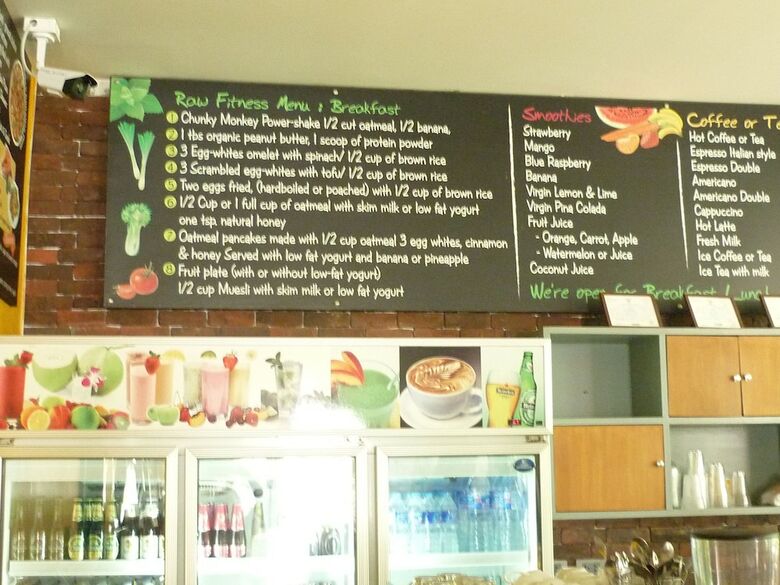 Raw Fitness Menu : Breakfast
1 Chunky Monkey Power-shake 1/2 cut oatmeal, 1/2 banana,
2 1 tbs organic peanut butter, 1 scoop of protein powder
3 3 Egg-whites omelet with spinach/ 1/2 cup of brown rice
4 3 Scrambled egg-whites with tofu/ 1/2 cup of brown rice
5 Two eggs fried, (hardboiled or poached) with 1/2 cup of brown rice
6 1/2 Cup or 1 full cup of oatmeal with skim milk or low fat yogurt
one tsp. natural honey
7 Oatmeal pancakes made with 1/2 cup oatmeal 3 egg whites, cinnamon
& honey Served with low fat yogurt and banana or pineapple
8 Fruit plate (with or without low-fat yogurt)
1/2 cup Muesli with skim milk or low fat yogurt
Smoothies
Strawberry
Mango
Blue Raspberry
Banana
Virgin Lemon & Lime
Virgin Pina Colada
Fruit Juice
- Orange, Carrot, Apple
- Watermelon or Juice
Coconut Juice
Coffee or Te
Hot Coffee or Tea
Espresso Italian style
Espresso Double
Americano
Americano Double
Cappuccino
Hot Latte
Fresh Milk
Ice Coffee or Tea
Ice Tea with milk
We're open for Breakfast Lunc